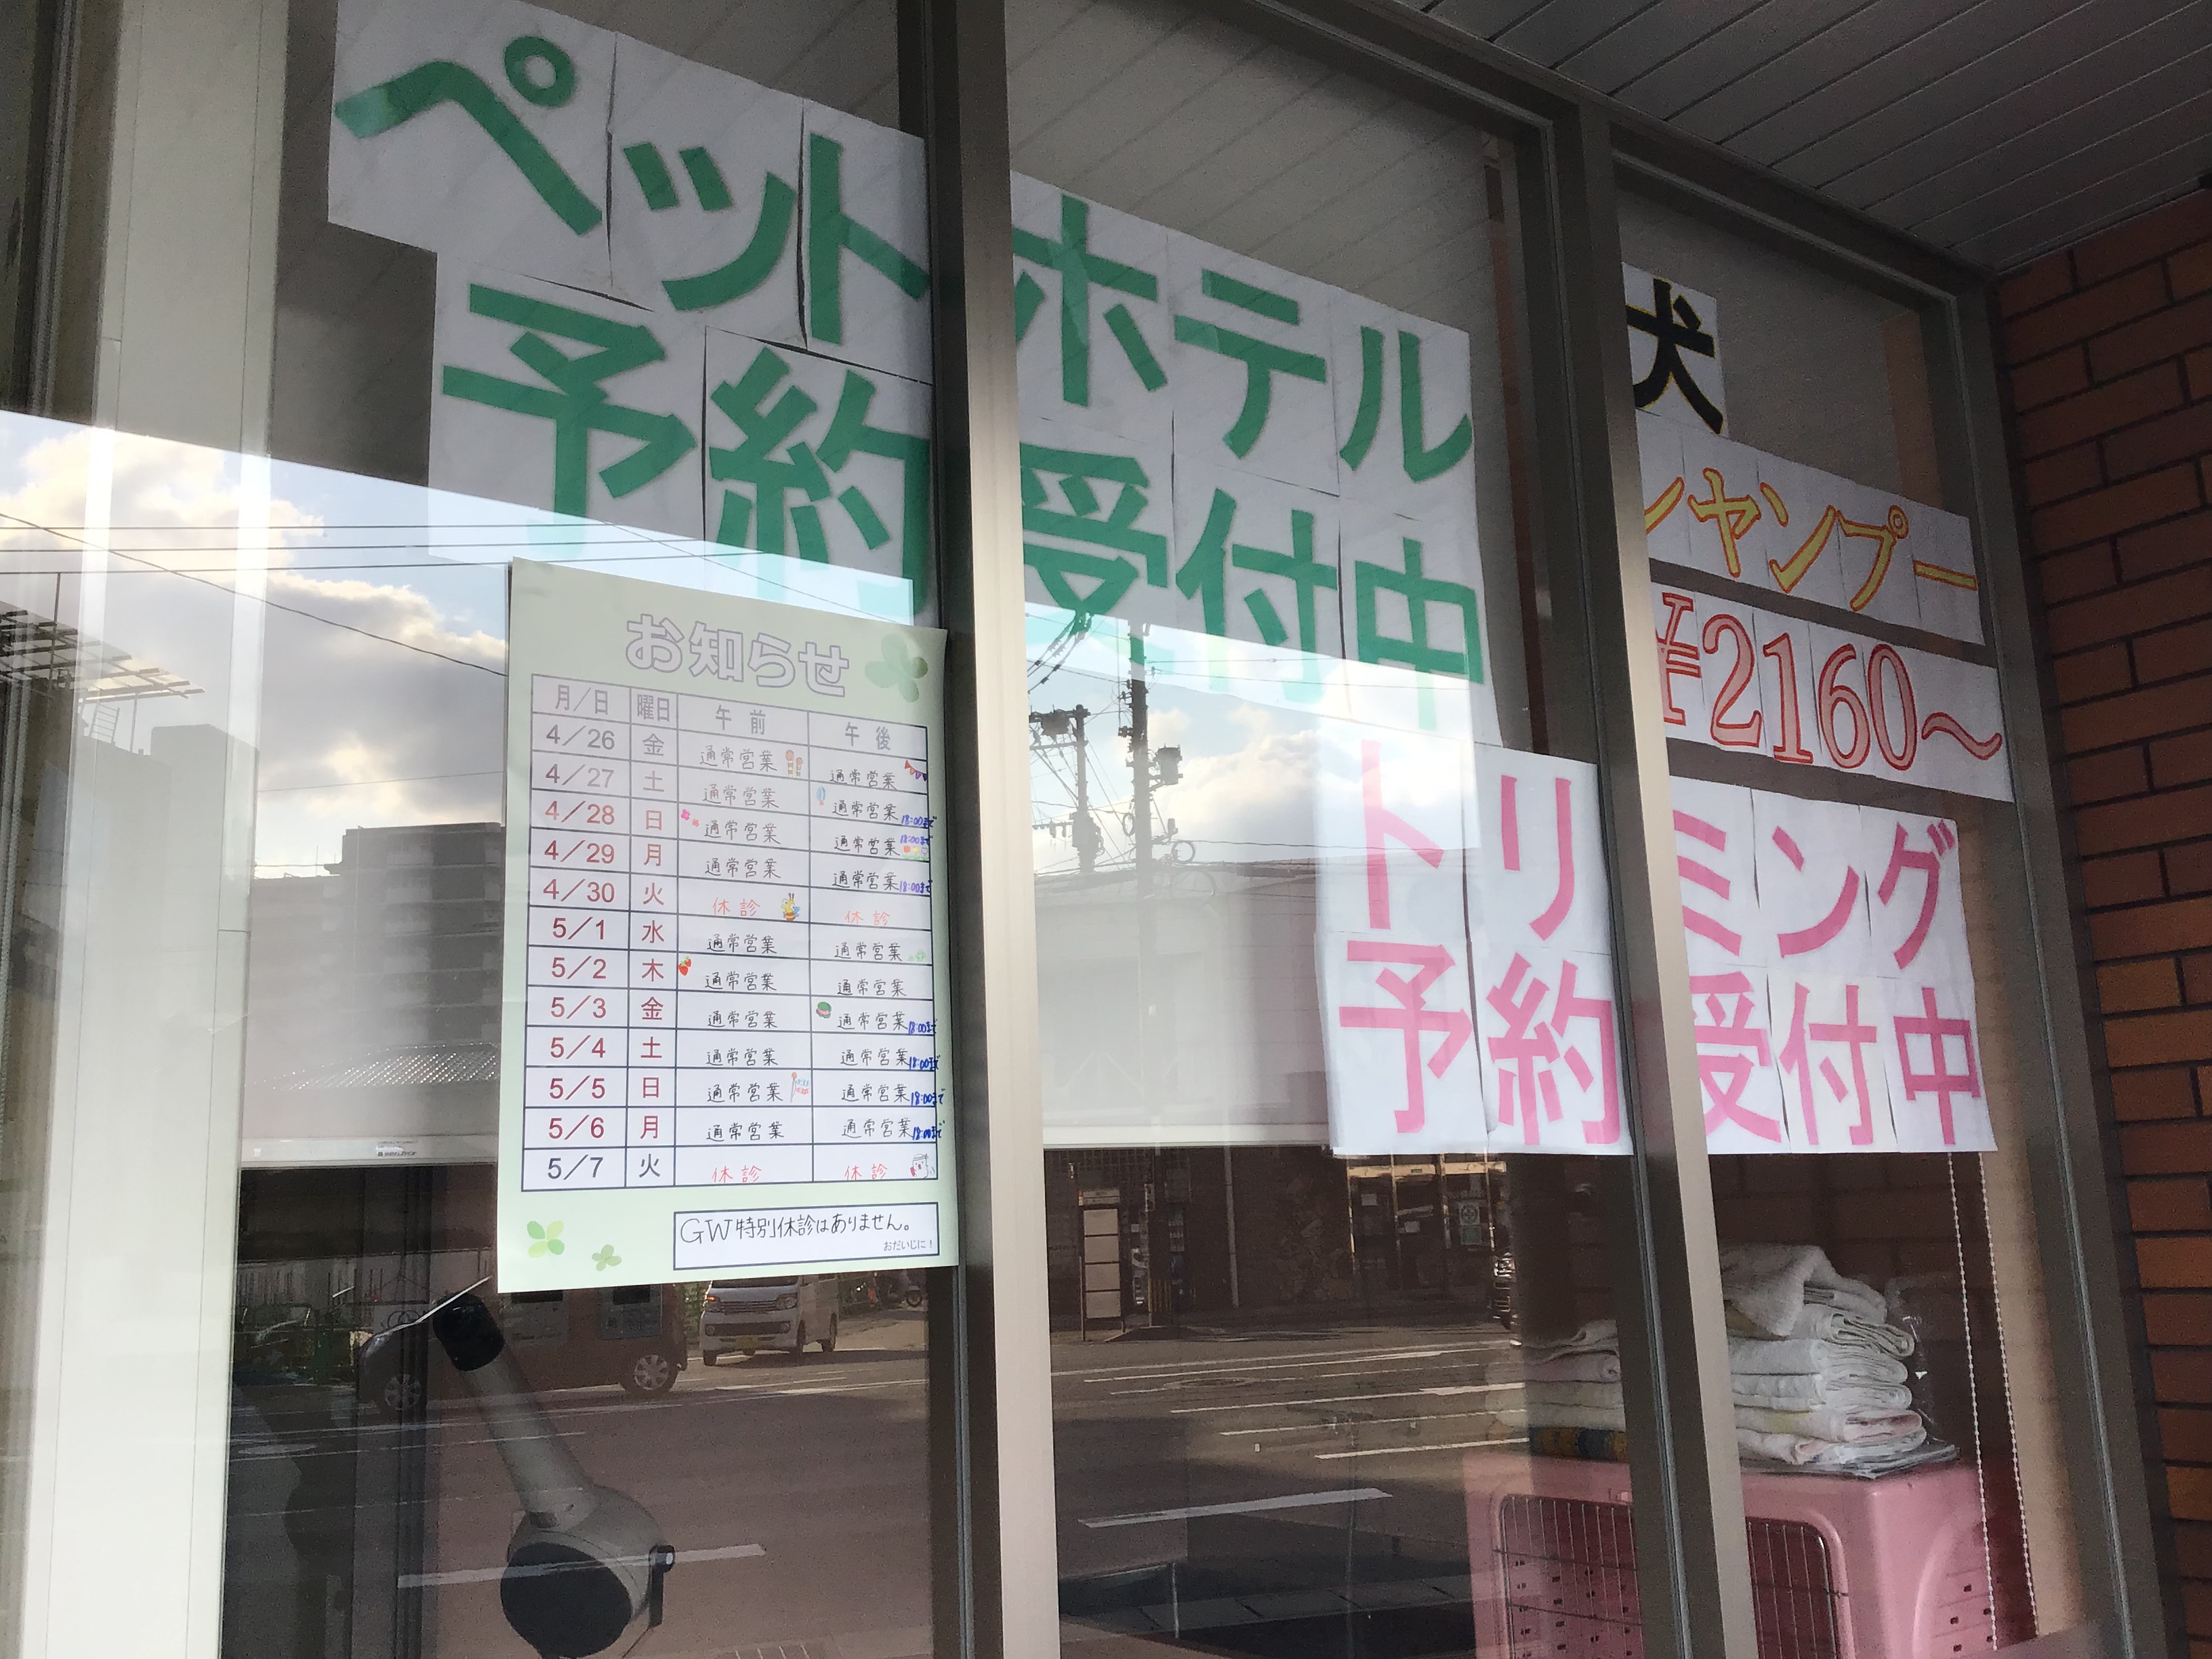 ペットホテル
予約受付中
犬
シャンプー
¥2160～
トリミング
予約受付中
お知らせ
月／日 曜日 午前 午後
4／26 金 通常営業 通常営業
4／27 土 通常営業 通常営業 18:00まで
4／28 日 通常営業 通常営業 18:00まで
4／29 月 通常営業 通常営業 18:00まで
4／30 火 休診 休診
5／1 水 通常営業 通常営業
5／2 木 通常営業 通常営業
5／3 金 通常営業 通常営業 18:00まで
5／4 土 通常営業 通常営業 18:00まで
5／5 日 通常営業 通常営業 18:00まで
5／6 月 通常営業 通常営業 18:00まで
5／7 火 休診 休診
GW特別休診はありません。
おだいじに！